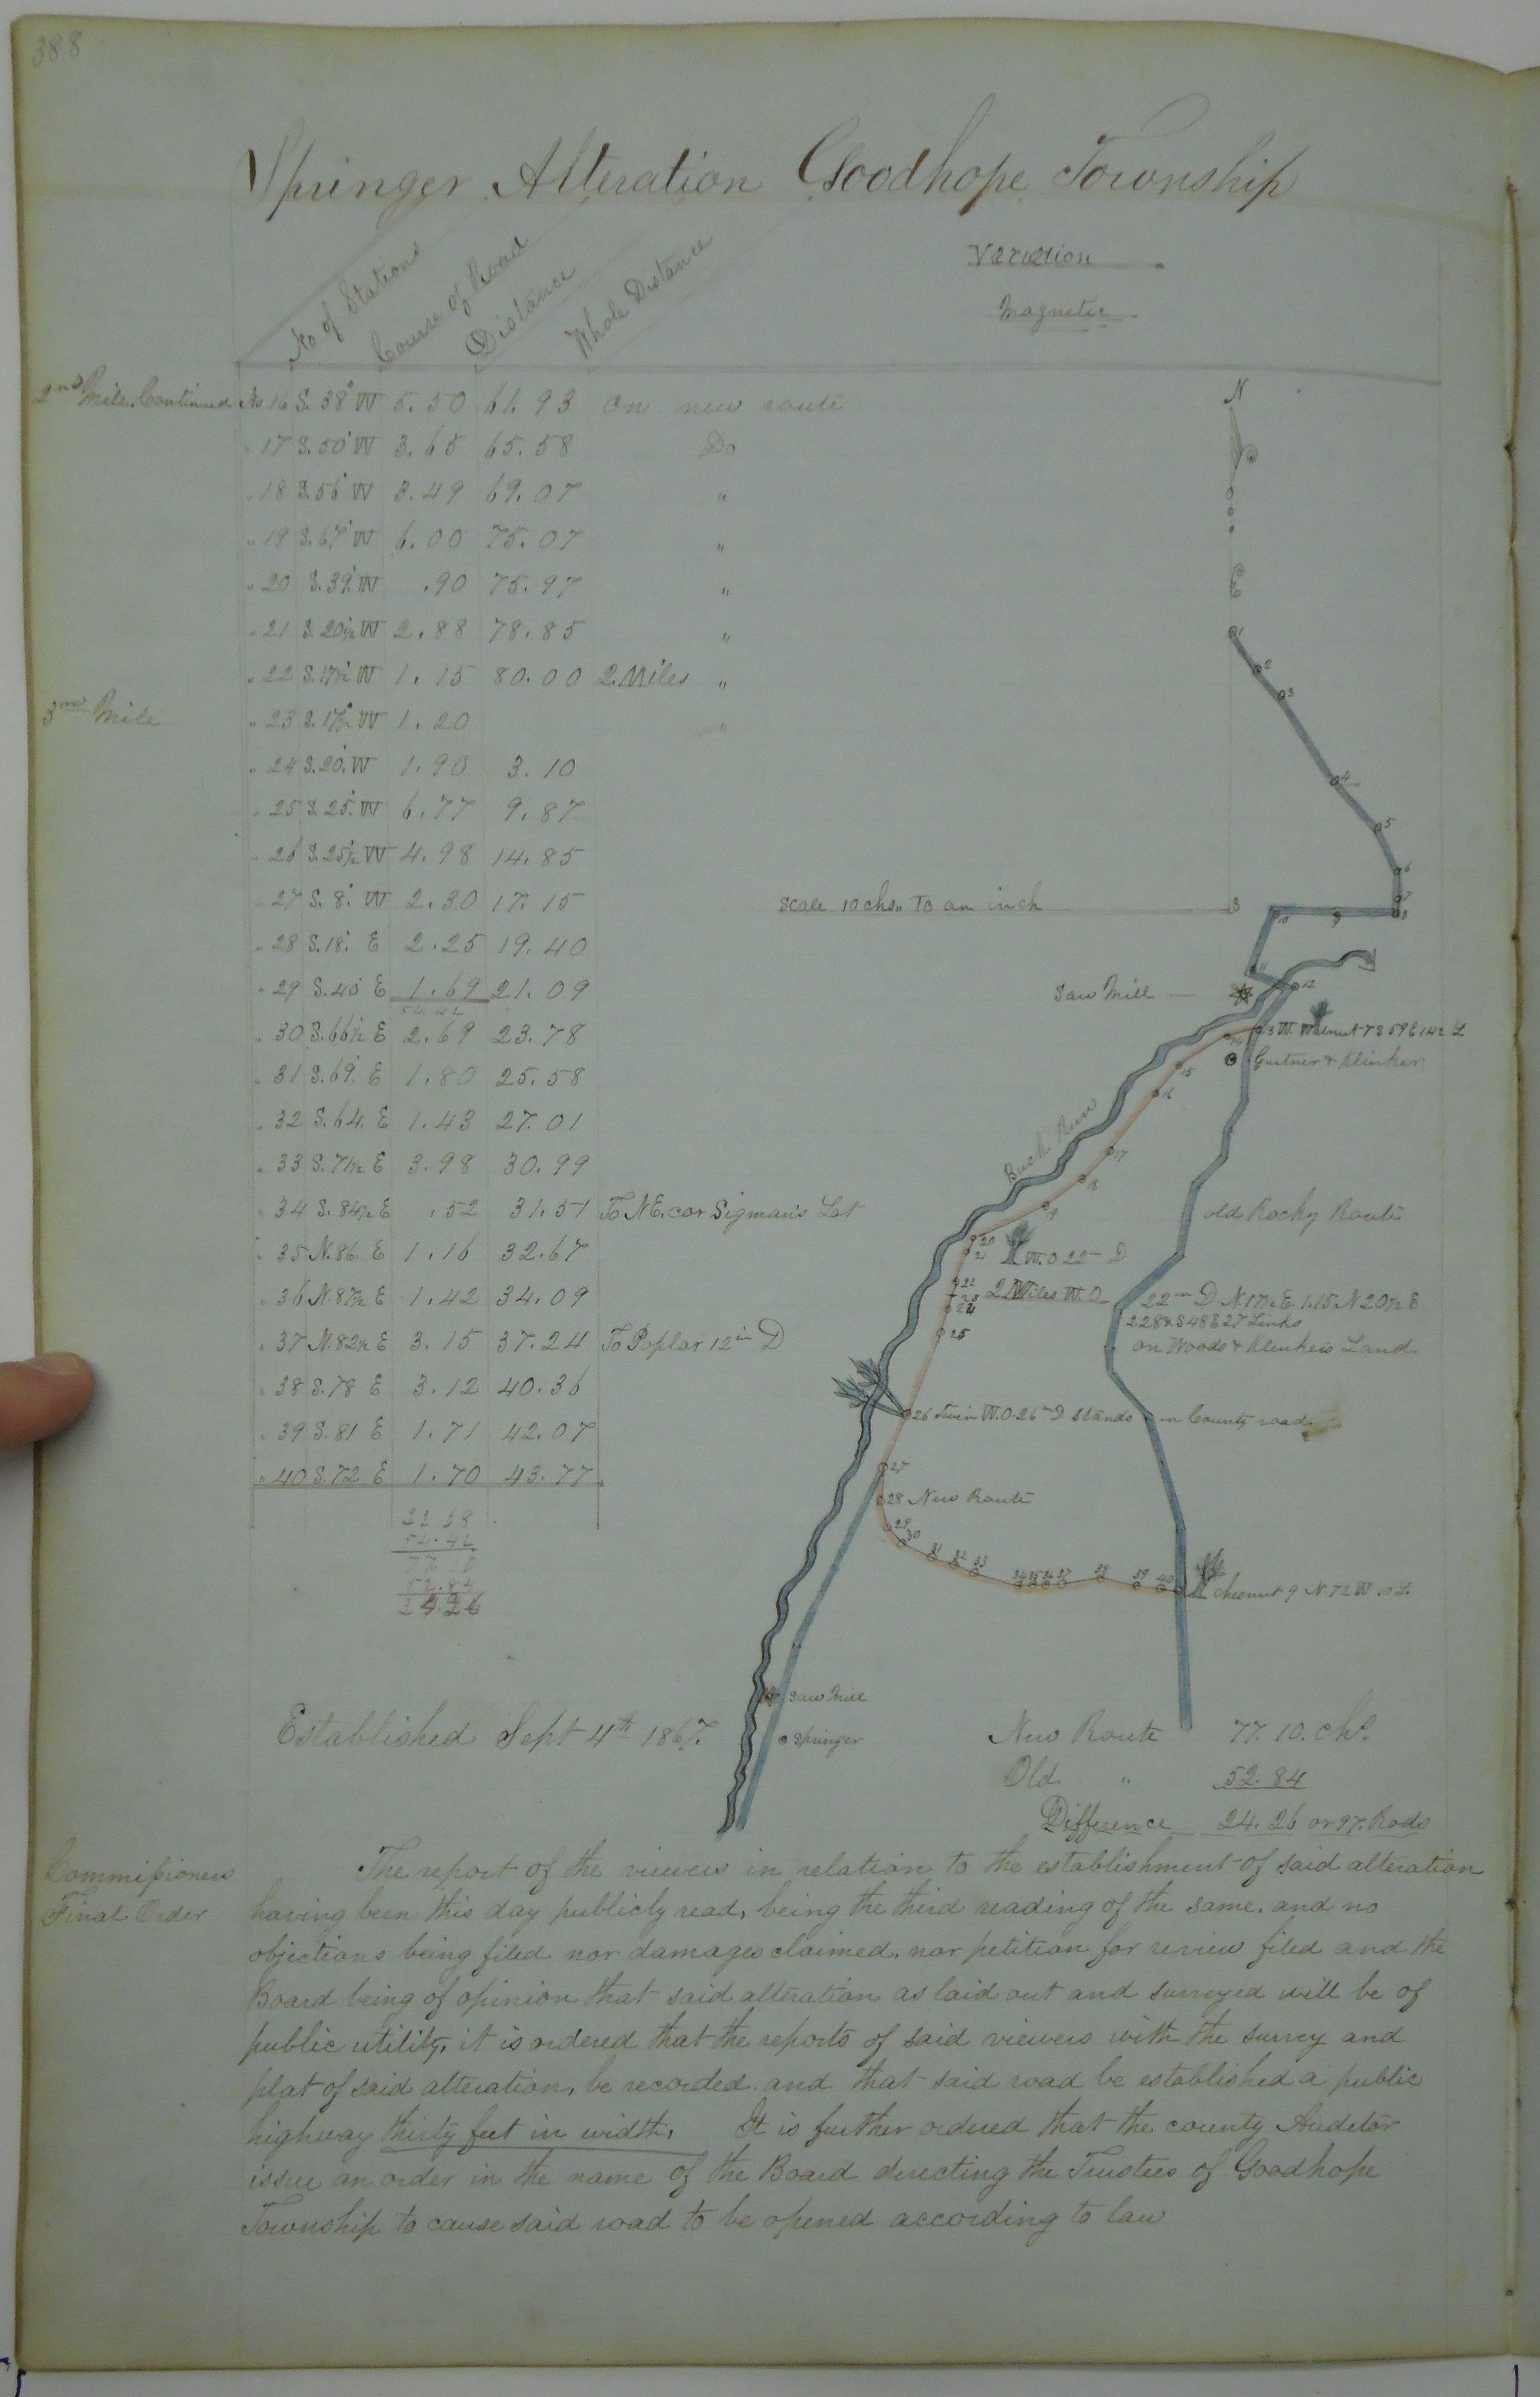 388
Springer Alteration Goodhope Township
No of Stations
Course of Road
Distance
Whole Distance
Variation
Magnetic
2nd Mile Continued No 16 S. 38° W 5.50 61.93 On new route
" 17 S. 50° W 3.65 65.58 Do
" 18 S. 56° W 3.49 69.07 "
" 19 S. 67° W 6.00 75.07 "
" 20 S. 39° W .90 75.97 "
" 21 S. 20½ W 2.88 78.85 "
" 22 S. 17½ W 1.15 80.00 2 Miles "
3rd Mile " 23 S. 17½ W 1.20 "
" 24 S. 20° W 1.90 3.10
" 25 S. 25° W 6.77 9.87
" 26 S. 25½ W 4.98 14.85
" 27 S. 8° W 2.30 17.15
" 28 S. 18° E 2.25 19.40
" 29 S. 40° E 1.69 21.09
54.42
" 30 S. 66½ E 2.69 23.78
" 31 S. 69° E 1.80 25.58
" 32 S. 64. E 1.43 27.01
" 33 S. 71½ E 3.98 30.99
" 34 S. 84½ E .52 31.51 To N.E. cor Sigman's Lot
" 35 N. 86. E 1.16 32.67
" 36 N. 87½ E 1.42 34.09
" 37 N. 82½ E 3.15 37.24 To Poplar 12 in D
" 38 S. 78 E 3.12 40.36
" 39 S. 81 E 1.71 42.07
" 40 S. 72 E 1.70 43.77
54.42
52.84
24.26
N
1
2
3
4
5
6
7
8
9
10
Scale 10 chs. To an inch
S
11
12
Saw Mill
13 W. Walnut 7 S 59 E 142 L
14
Gustner & Klinker
15
16
Buck Run
17
18
19
old Rocky Route
20
21
W.O 22 in D
22
23
2 Miles W.O.
24
22 in D N. 17½ E. 1.15 N 20½ E
2.28 & S 48 E 27 Links
on Woods & Klinkers Land
25
26 Twin W.O. 26 in D stands in County road
27
28 New Route
29
30
31 32 33
34 35 36 37 38 39 40
Chesnut 9 N. 72 W. 10 L.
Saw Mill
Springer
Established Sept 4th 1867.
New Route 77.10. chs.
Old " 52.84
Difference 24.26 or 97. Rods
Commissioners
Final Order
The report of the viewers in relation to the establishment of said alteration
having been this day publicly read, being the third reading of the same, and no
objections being filed nor damages claimed, nor petition for review filed and the
Board being of opinion that said alteration as laid out and surveyed will be of
public utility, it is ordered that the reports of said viewers with the survey and
plat of said alteration, be recorded and that said road be established a public
highway thirty feet in width, It is further ordered that the county Auditor
issue an order in the name of the Board directing the Trustees of Goodhope
Township to cause said road to be opened according to law